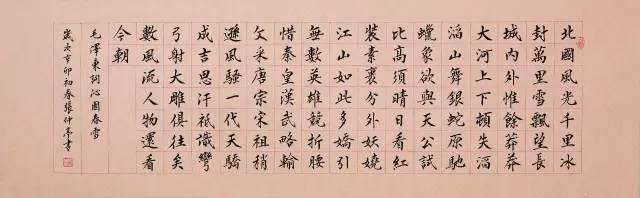 北國風光千里冰
封萬里雪飄望長
城内外惟餘莽莽
大河上下頓失滔
滔山舞銀蛇原馳
蠟象欲與天公試
比高須晴日看紅
裝素裹分外妖嬈
江山如此多嬌引
無數英雄競折腰
惜秦皇漢武略輸
文采唐宗宋祖稍
遜風騷一代天驕
成吉思汗祇識彎
弓射大雕俱往矣
數風流人物還看
今朝
毛澤東詞沁園春雪
歲次辛卯初春張仲亭書